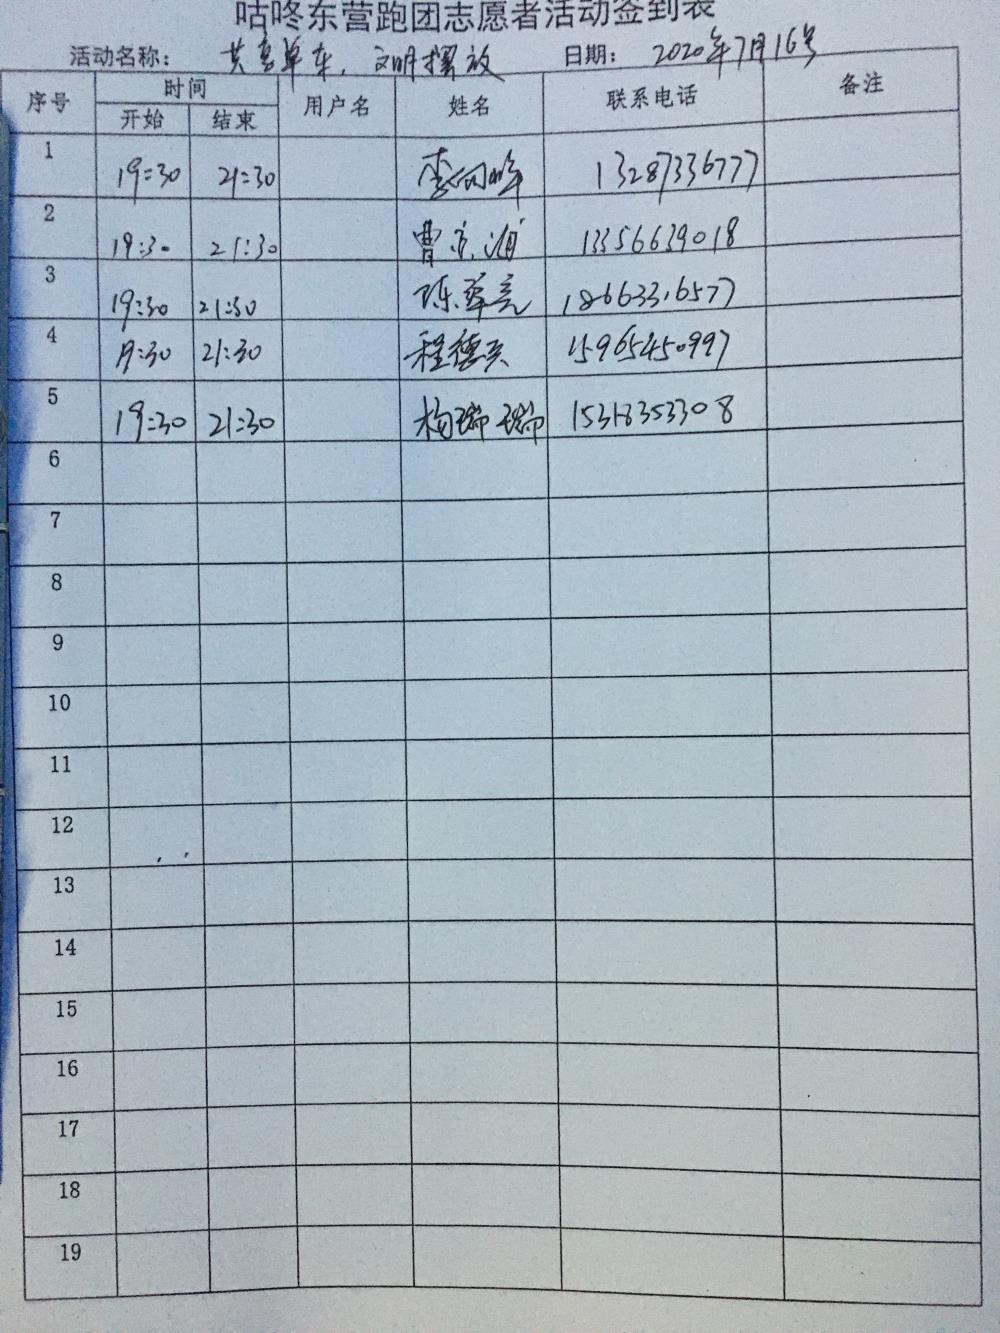 咕咚东营跑团志愿者活动签到表
活动名称: 共享单车,文明摆放 日期: 2020年7月16号
序号 时间 用户名 姓名 联系电话 备注
开始 结束
1 19:30 21:30 李向晔 13287336777
2 19:30 21:30 曹 13356639018
3 19:30 21:30 陈翠亮 18663316577
4 19:30 21:30 程德 15965450997
5 19:30 21:30 杨瑞瑞 15318353308
6
7
8
9
10
11
12
13
14
15
16
17
18
19